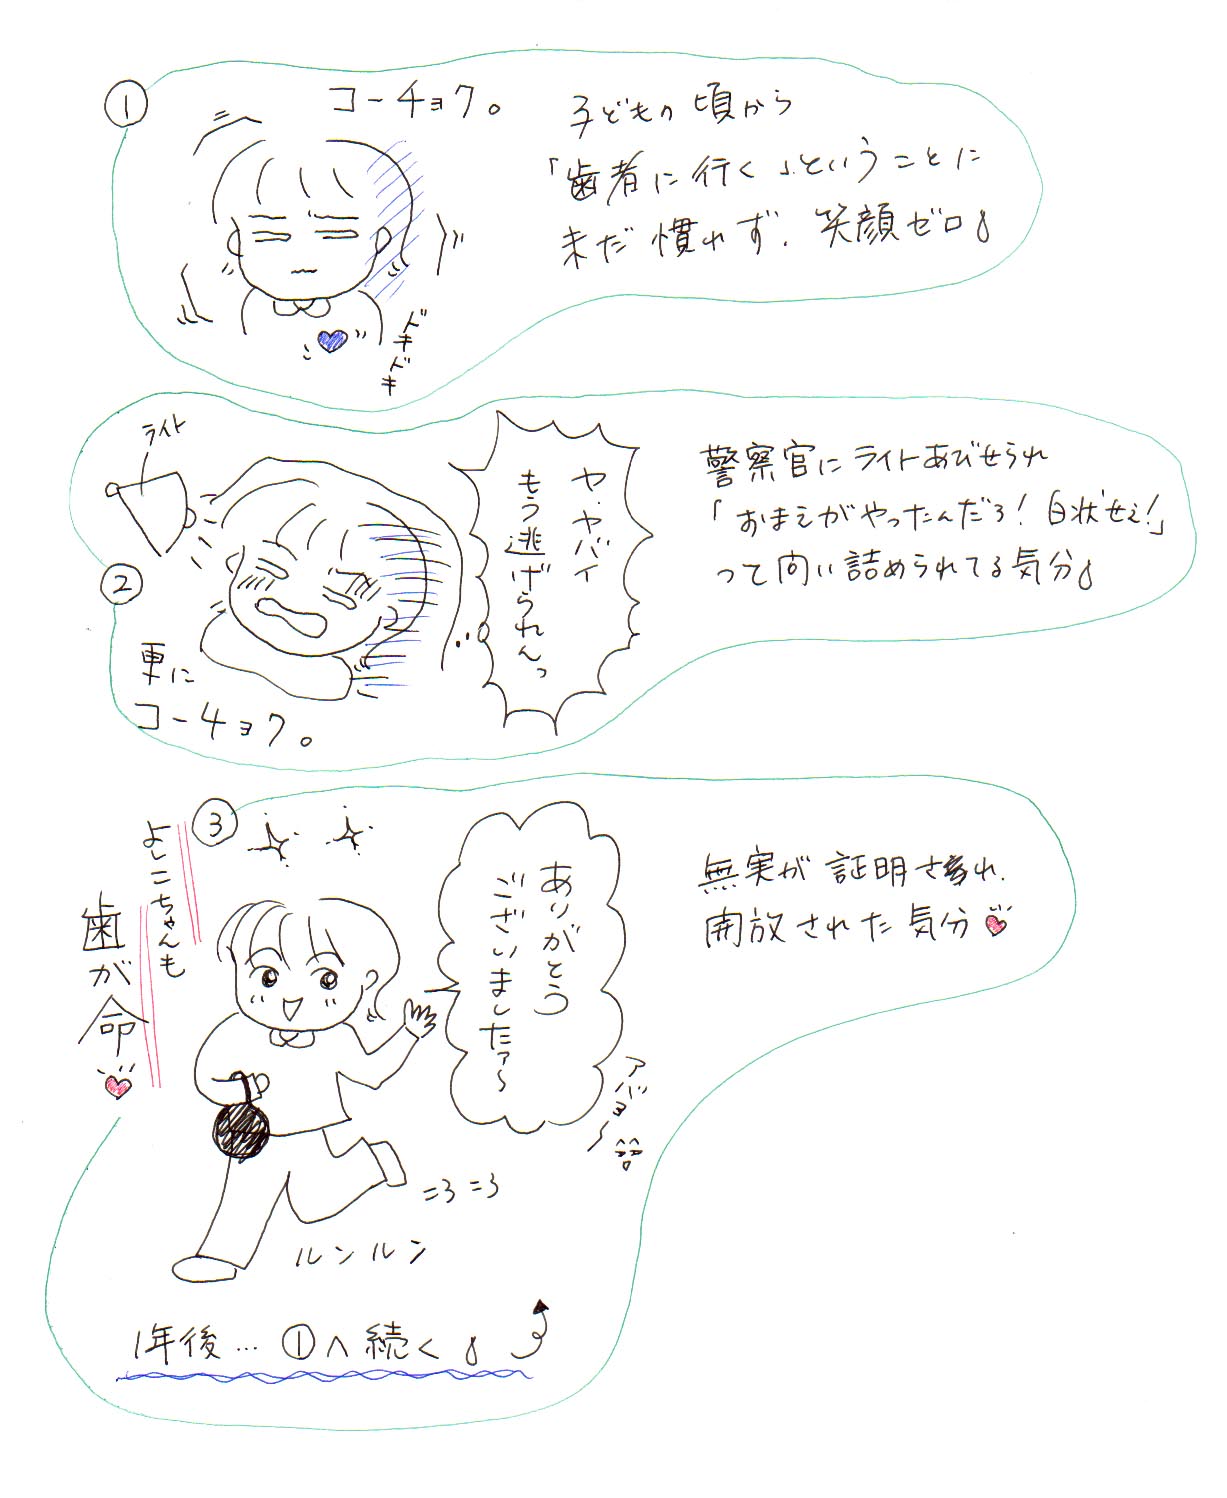 ①
コーチョク。
子どもの頃から
「歯者に行く」ということに
未だ慣れず、笑顔ゼロ
ドキドキ
ライト
②
ヤ、ヤバイ
もう逃げられんっ
警察官にライトあびせられ
「おまえがやったんだろ！白状せえ！」
って問い詰められてる気分
更に
コーチョク。
③
よしこちゃんも
歯が命
ありがとう
ございましたァ〜
アバヨ〜
無実が証明され、
開放された気分
ルンルン
1年後… ①へ続く